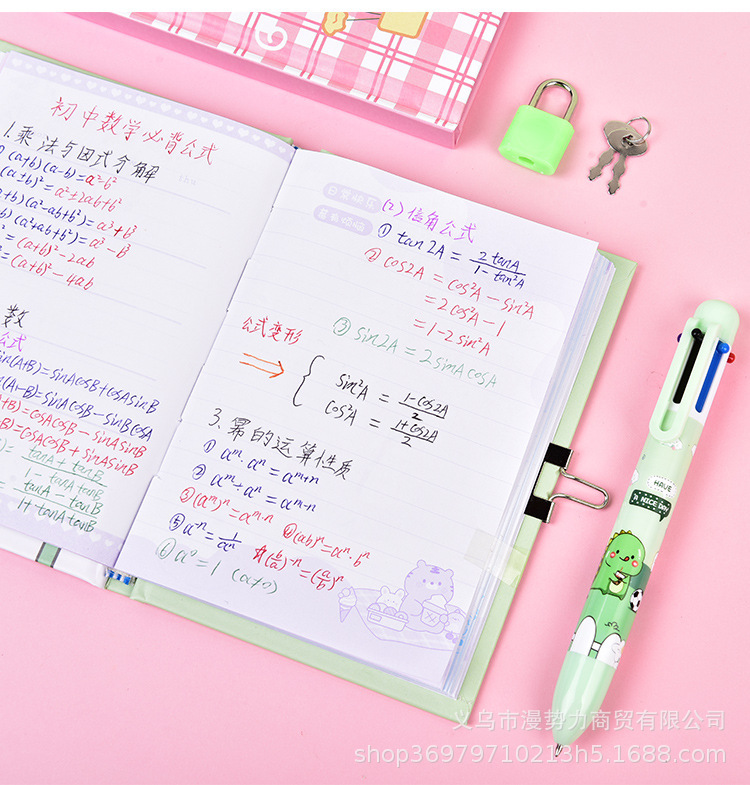 初中数学必背公式
1.乘法与因式分解
(a+b)(a-b)=a²-b²
(a±b)²=a²±2ab+b²
+b)(a²-ab+b²)=a³+b³
b)(a²+ab+b²)=a³-b³
=(a+b)²-2ab
=(a+b)²-4ab
数
公式
sin(A+B)=sinAcosB+cosAsinB
(A-B)=sinAcosB-sinBcosA
+B)=cosAcosB-sinAsinB
B)=cosAcosB+sinAsinB
)=(tanA+tanB)/(1-tanAtanB)
=(tanA-tanB)/(1+tanAtanB)
(2)倍角公式
① tan2A=2tanA/(1-tan²A)
② cos2A=cos²A-sin²A
=2cos²A-1
=1-2sin²A
③ sin2A=2sinAcosA
公式变形
sin²A=(1-cos2A)/2
cos²A=(1+cos2A)/2
3.幂的运算性质
① aᵐ·aⁿ=aᵐ⁺ⁿ
② aᵐ÷aⁿ=aᵐ⁻ⁿ
③(aᵐ)ⁿ=aᵐ·ⁿ
④(ab)ⁿ=aⁿ·bⁿ
⑤a⁻ⁿ=1/aⁿ
(b/a)⁻ⁿ=(a/b)ⁿ
⑥a⁰=1 (a≠0)
HAVE
A NICE DAY
义乌市漫势力商贸有限公司
shop36979710213h5.1688.com